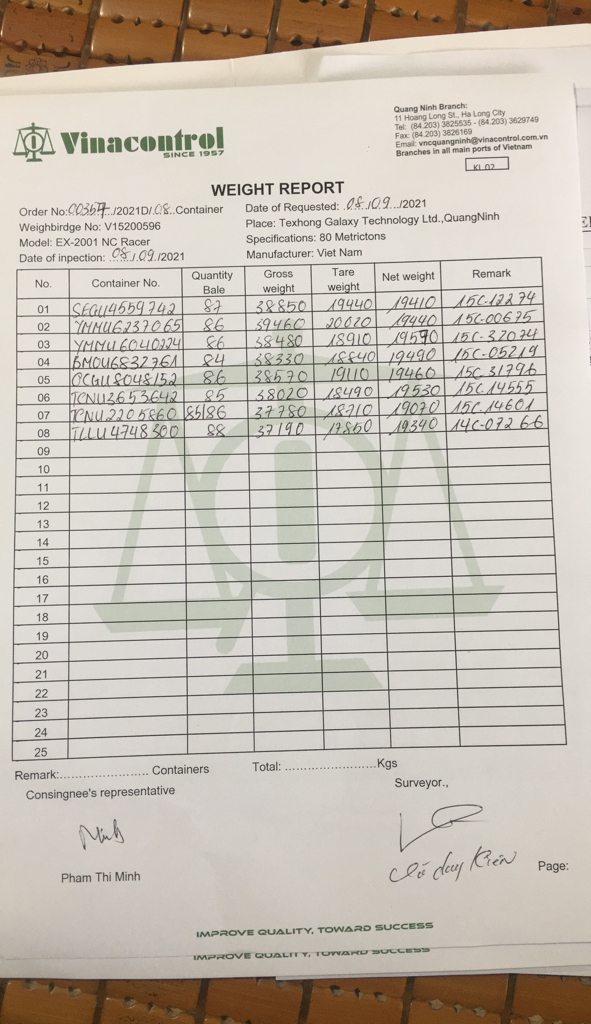 Quang Ninh Branch:
11 Hoang Long St., Ha Long City
Tel: (84.203) 3825535 - (84.203) 3629749
Fax: (84.203) 3826169
Email: vncquangninh@vinacontrol.com.vn
Branches in all main ports of Vietnam
Vinacontrol
SINCE 1957
KL 02
WEIGHT REPORT
Order No:00357../2021D/.08..Container Date of Requested: .08./.09../2021
Weighbirdge No: V15200596 Place: Texhong Galaxy Technology Ltd.,QuangNinh
Model: EX-2001 NC Racer Specifications: 80 Metrictons
Date of inpection: .08./.09./2021 Manufacturer: Viet Nam
No. Container No. Quantity Bale Gross weight Tare weight Net weight Remark
01 SEGU4559742 87 38850 19440 19410 15C-12274
02 YMMU6237065 86 39460 20020 19440 15C-00675
03 YMMU6040224 86 38480 18910 19570 15C-32074
04 BMOU6832761 84 38330 18840 19490 15C-05219
05 OCGU8048152 86 38570 19110 19460 15C.31796
06 TCNU3653642 85 38020 18490 19530 15C.14555
07 TCNU2205860 85/86 37780 18710 19070 15C.14601
08 TLLU4748300 88 37190 17850 19340 14C-07266
09
10
11
12
13
14
15
16
17
18
19
20
21
22
23
24
25
Remark:........................ Containers Total: .........................Kgs
Consingnee's representative Surveyor.,
Minh
Pham Thi Minh Page:
IMPROVE QUALITY, TOWARD SUCCESS
IMPROVE QUALITY, TOWARD SUCCESS